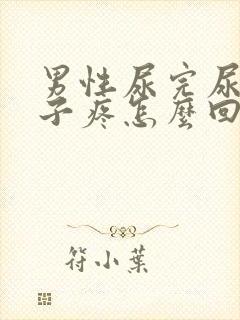 男性尿完尿
子疼怎麼回
符小葉